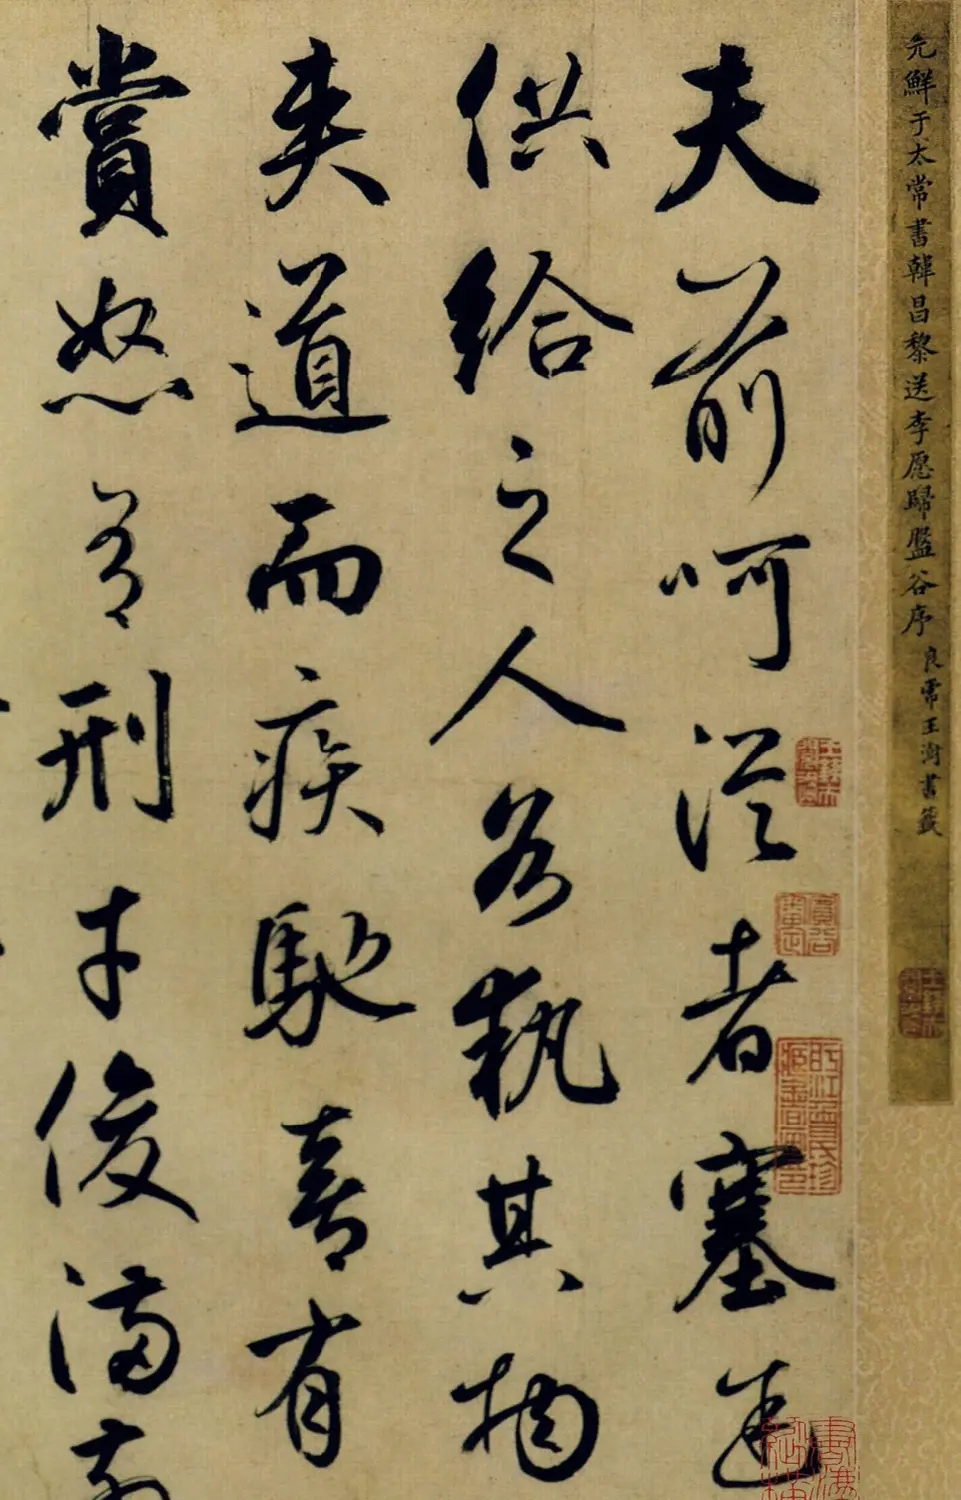 元鮮于太常書韓昌黎送李愿歸盤谷序
良常王澍書籤
夫前呵從者塞途
供給之人各執其物
夾道而疾馳喜有
賞怒有刑才俊滿前